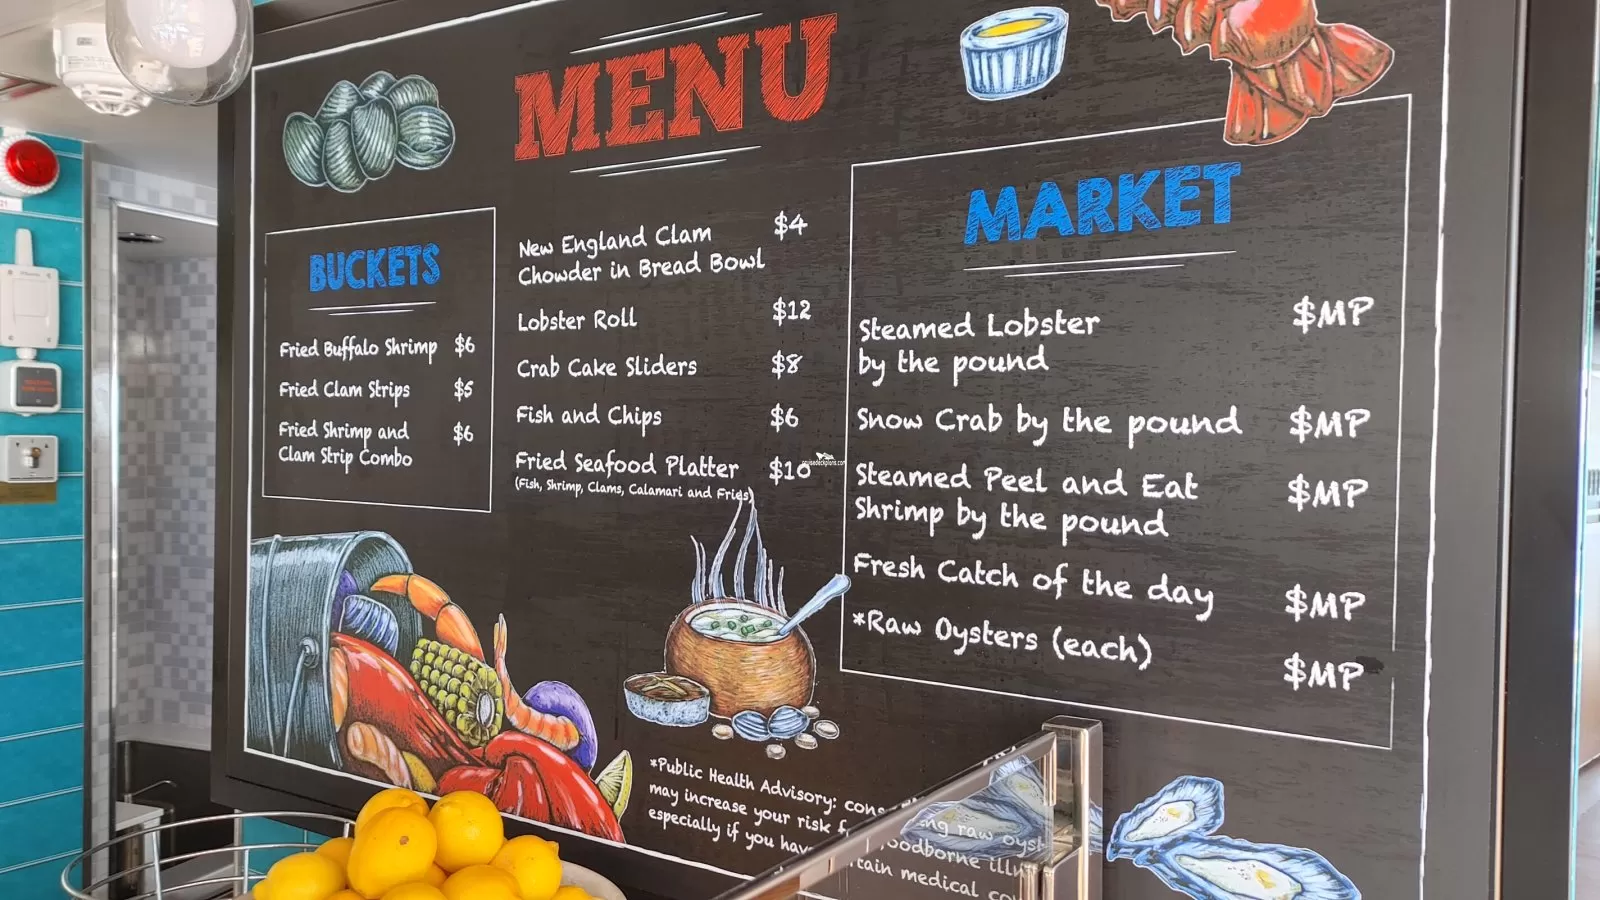 MENU
BUCKETS
Fried Buffalo Shrimp $6
Fried Clam Strips $5
Fried Shrimp and $6
Clam Strip Combo
New England Clam $4
Chowder in Bread Bowl
Lobster Roll $12
Crab Cake Sliders $8
Fish and Chips $6
Fried Seafood Platter $10
(Fish, Shrimp, Clams, Calamari and Fries)
MARKET
Steamed Lobster $MP
by the pound
Snow Crab by the pound $MP
Steamed Peel and Eat $MP
Shrimp by the pound
Fresh Catch of the day $MP
*Raw Oysters (each) $MP
*Public Health Advisory: raw
may increase your risk
especially if you medical